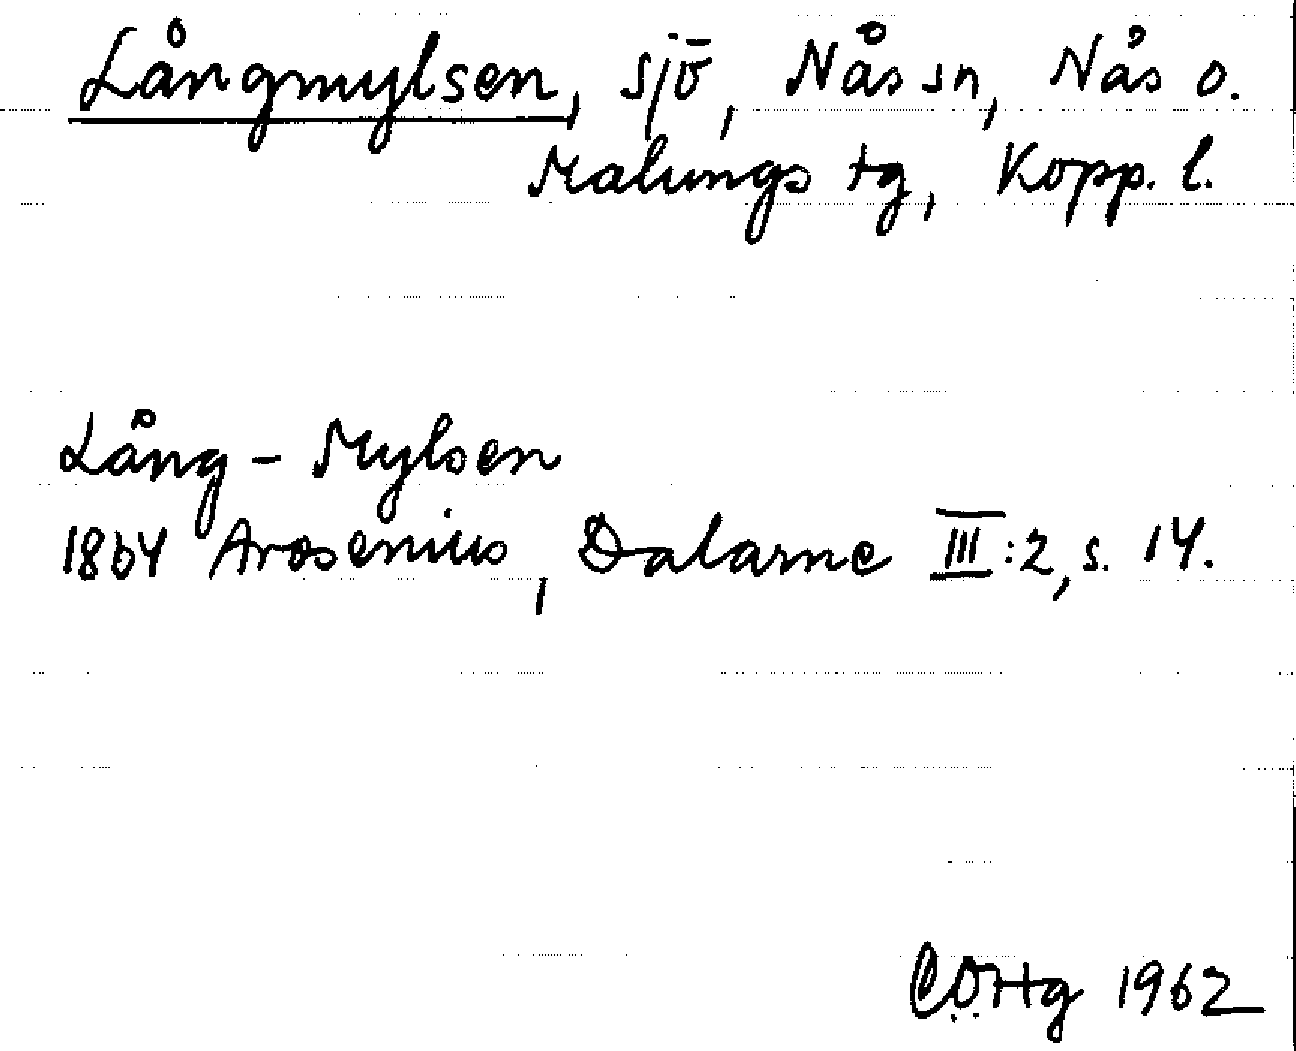 Långmylsen, sjö, Nås sn, Nås o.
Malungs tg, Kopp. l.
Lång-Mylsen
1864 Arosenius, Dalarne III:2, s. 14.
1962